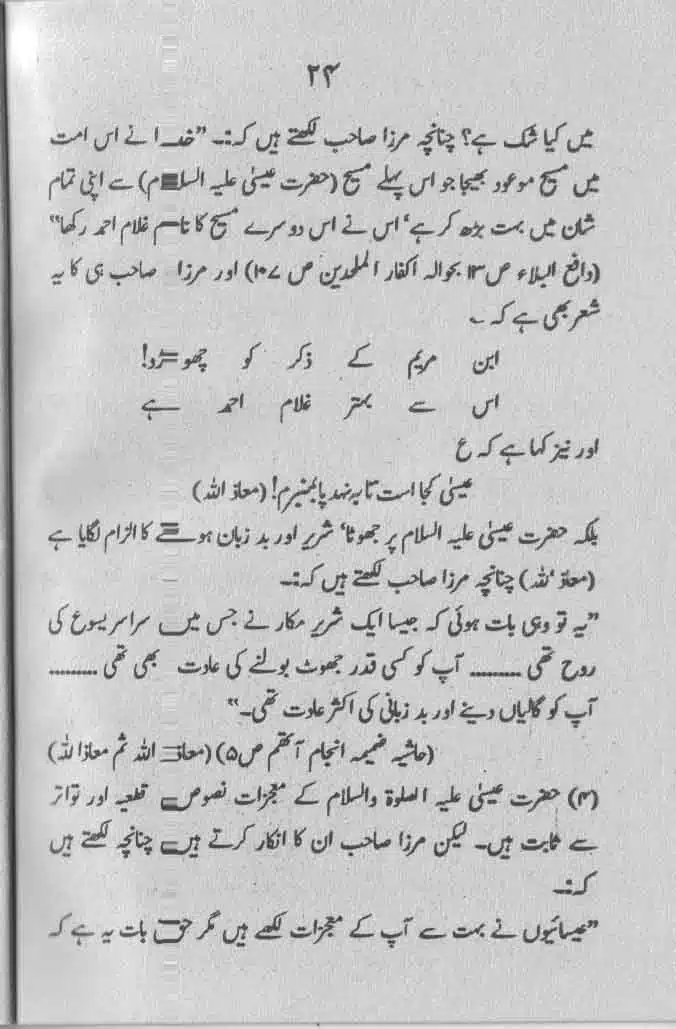 ۲۴
میں کیا شک ہے؟ چنانچہ مرزا صاحب لکھتے ہیں کہ:۔ ”خدا نے اس امت
میں مسیح موعود بھیجا جو اس پہلے مسیح (حضرت عیسیٰ علیہ السلام) سے اپنی تمام
شان میں بہت بڑھ کر ہے‘ اس نے اس دوسرے مسیح کا نام غلام احمد رکھا“
(دافع البلاء ص۱۳ بحوالہ اکفار الملحدین ص ۱۰۷) اور مرزا صاحب ہی کا یہ
شعر بھی ہے کہ ؎
ابن مریم کے ذکر کو چھوڑدو!
اس سے بہتر غلام احمد ہے
اور نیز کہا ہے کہ ع
عیسیٰ کجا است تا بہ نہد پا بمنبرم! (معاذ اللہ)
بلکہ حضرت عیسیٰ علیہ السلام پر جھوٹا‘ شریر اور بد زبان ہونے کا الزام لگایا ہے
(معاذ اللہ) چنانچہ مرزا صاحب لکھتے ہیں کہ:۔
”یہ تو وہی بات ہوئی کہ جیسا ایک شریر مکار نے جس میں سراسر یسوع کی
روح تھی ......... آپ کو کسی قدر جھوٹ بولنے کی عادت بھی تھی .........
آپ کو گالیاں دینے اور بد زبانی کی اکثر عادت تھی۔“
(حاشیہ ضمیمہ انجام آتھم ص۵) (معاذ اللہ ثم معاذاللہ)
(۴) حضرت عیسیٰ علیہ الصلوۃ والسلام کے معجزات نصوص قطعیہ اور تواتر
سے ثابت ہیں۔ لیکن مرزا صاحب ان کا انکار کرتے ہیں چنانچہ لکھتے ہیں
کہ:۔
”عیسائیوں نے بہت سے آپ کے معجزات لکھے ہیں مگر حق بات یہ ہے کہ